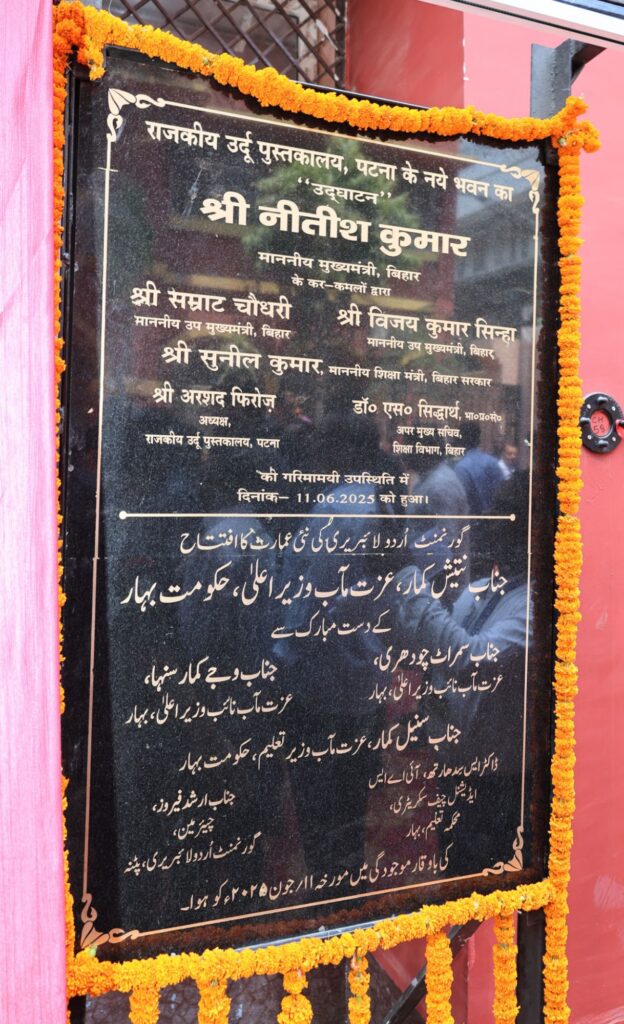 राजकीय उर्दू पुस्तकालय, पटना के नये भवन का
‘‘उद्घाटन’’
श्री नीतीश कुमार
माननीय मुख्यमंत्री, बिहार
के कर–कमलों द्वारा
श्री सम्राट चौधरी
माननीय उप मुख्यमंत्री, बिहार
श्री विजय कुमार सिन्हा
माननीय उप मुख्यमंत्री, बिहार
श्री सुनील कुमार, माननीय शिक्षा मंत्री, बिहार सरकार
श्री अरशद फिरोज़
अध्यक्ष,
राजकीय उर्दू पुस्तकालय, पटना
डॉ० एस० सिद्धार्थ, भा०प्र०से०
अपर मुख्य सचिव,
शिक्षा विभाग, बिहार
की गरिमामयी उपस्थिति में
दिनांक– 11.06.2025 को हुआ।
گورنمنٹ اُردو لائبریری کی نئی عمارت کا افتتاح
جناب نتیش کمار، عزت مآب وزیر اعلیٰ، حکومت بہار
کے دست مبارک سے
جناب سمراٹ چودھری،
عزت مآب نائب وزیر اعلیٰ، بہار
جناب وجے کمار سنہا،
عزت مآب نائب وزیر اعلیٰ، بہار
جناب سنیل کمار، عزت مآب وزیر تعلیم، حکومت بہار
ڈاکٹر ایس سدھارتھ، آئی اے ایس
ایڈیشنل چیف سکریٹری،
محکمہ تعلیم، بہار
جناب ارشد فیروز،
چیئرمین،
گورنمنٹ اُردو لائبریری، پٹنہ
کی باوقار موجودگی میں مورخہ ۱۱/جون ۲۰۲۵ء کو ہوا۔
CH
56